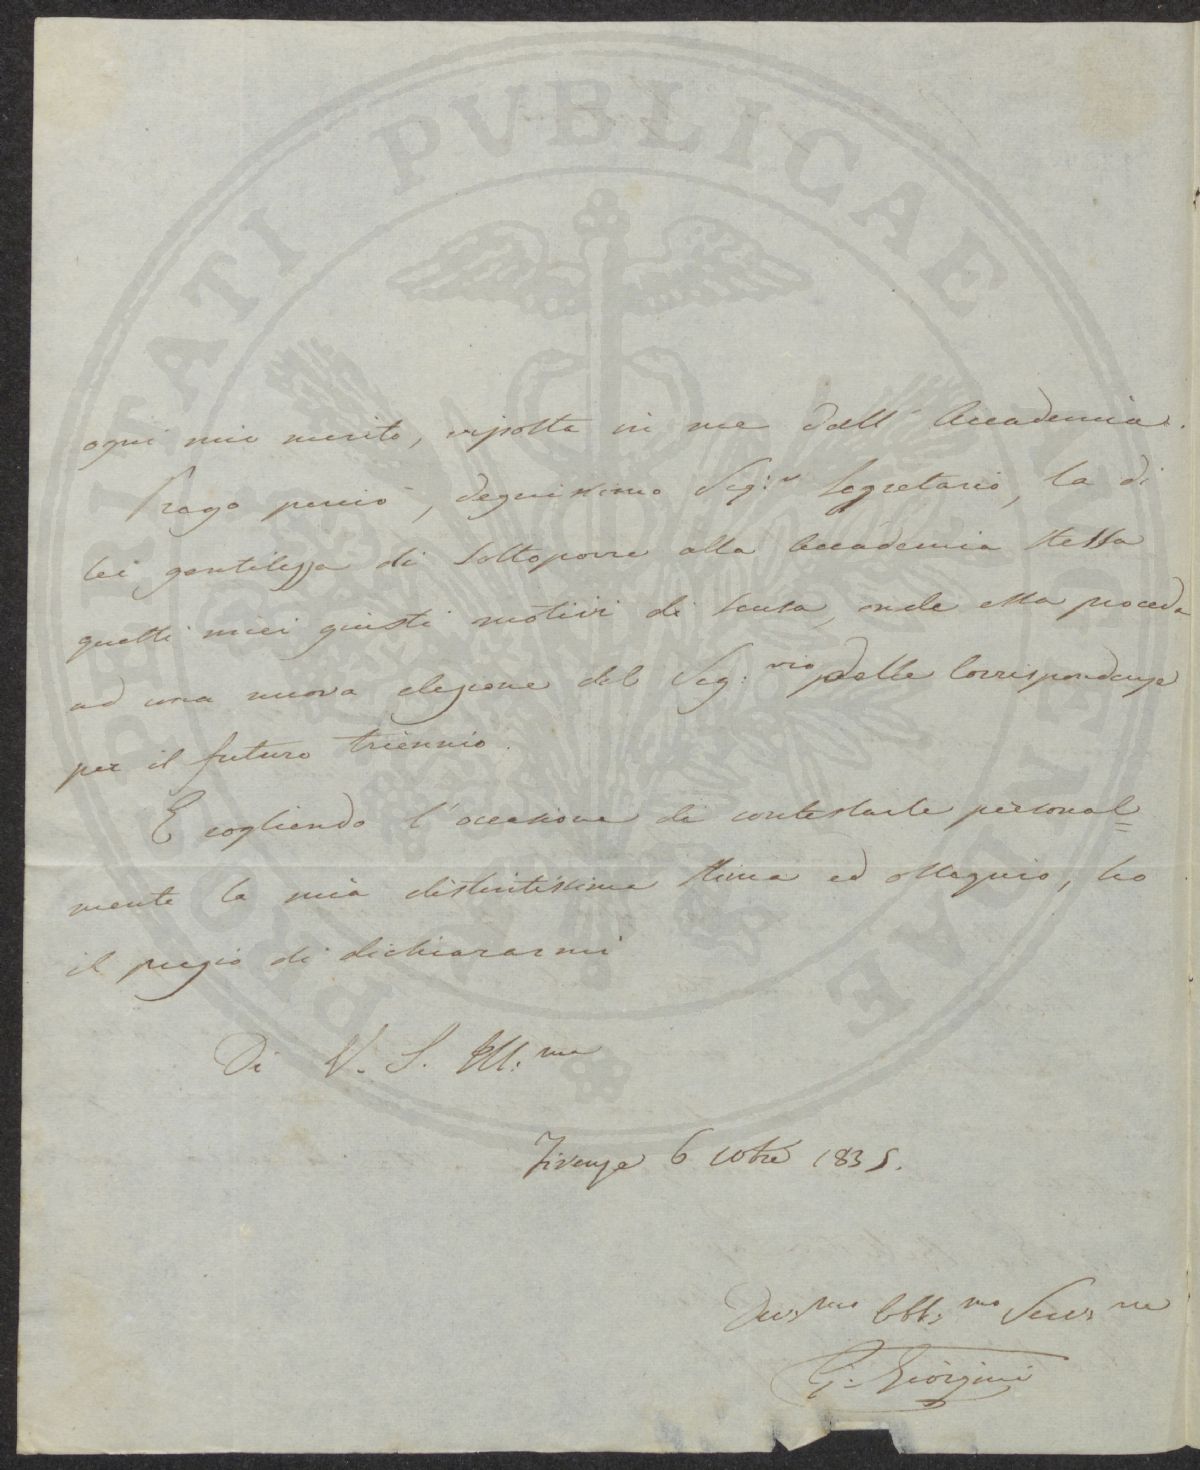 ogni mio merito, riposta in me dall' Accademia.
Prego perciò, degnissimo Sig:r Segretario, la di
lei gentilezza di sottoporre alla Accademia stessa
questi miei giusti motivi di scusa, onde essa proceda
ad una nuova elezione del Seg:rio delle Corrispondenze
per il futuro triennio.
E cogliendo l'occasione di contestarle personal=
mente la mia distintissima stima ed ossequio, ho
il pregio di dichiararmi
Di V. S. Ill:ma
Firenze 6 1835.
Dev:mo Obb:mo Serv:re
G. Giorgini
PROSPERITATI PVBLICAE AVGENDAE